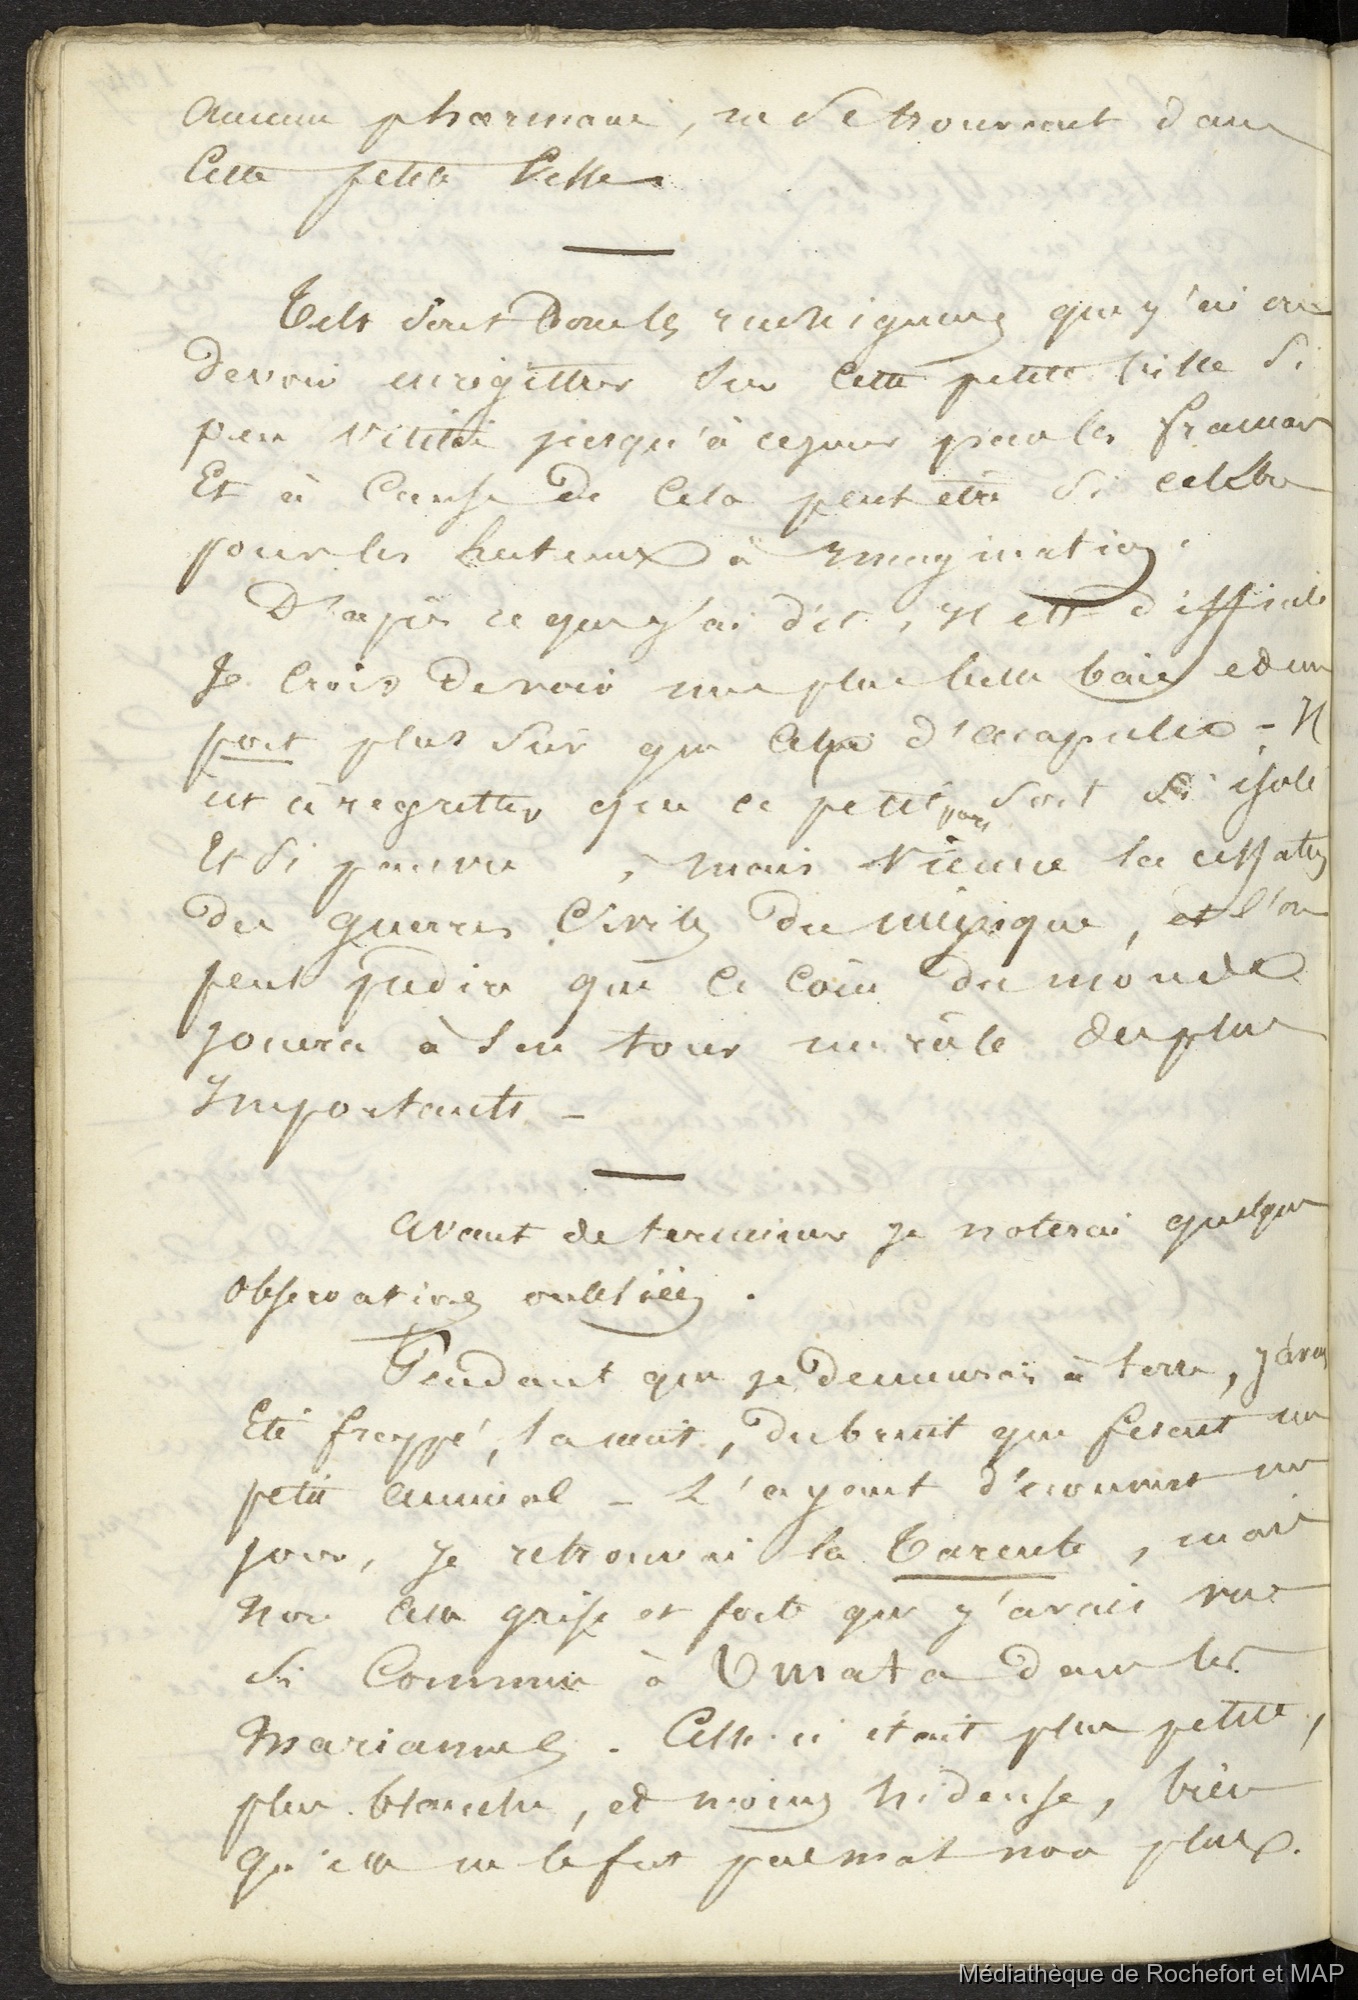 aucune pharmacie, ne se trouvant dans
cette petite ville.
Tels sont donc les renseignemens que j'ai cru
devoir enregistrer sur cette petite ville si
peu visitée jusqu'à ce jour par les français
Et à cause de cela peut etre si celebre
pour les auteurs à imagination.
D'après ce que j'ai dit, Il est difficile
Je crois de voir une plus belle baie et un
port plus sur que celui d'acapulco - Il
est à regretter que ce petit pays soit si isolé
Et si pauvre, mais vienne la cessation
des guerres civiles du mexique, et l'on
peut prédire que ce coin du monde
jouera à son tour un rôle des plus
Importants -
Avant de terminer je noterai quelques
observations oubliées.
Pendant que je demeurais à terre, j'avais
Eté frappé, la nuit, du bruit que fesait un
petit animal - L'ayant découvert un
jour, je retrouvai la Tarente, mais
non celle grise et forte que j'avais vue
si commune à Umata dans les
Mariannes. Celle-ci était plus petite,
plus blanche, et moins hideuse, bien
qu'elle ne le fut pas mal non plus.
Médiathèque de Rochefort et MAP